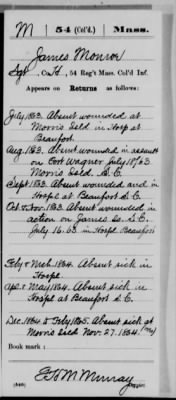 M | 54 (Col'd.) | Mass.
James Monroe
Sgt, Co. H, 54 Reg't Mass. Col'd Inf.
Appears on Returns as follows:
July 1863. Absent wounded at
Morris Isld in Hosp at
Beaufort
Aug. 1863. Absent wounded in assault
on Fort Wagner July 18, 63
Morris Isld. S.C.
Sept 1863. Absent wounded and in
Hosp at Beaufort S.C.
Oct & Nov. 1863. Absent wounded in
action on James Isd. S.C.
July 16. 63 in Hosp Beaufort
Feby & Mch. 1864. Absent sick in
Hosp.
Apr. & May 1864. Absent sick in
Hospt at Beaufort S.C.
Dec. 1864 to Feby 1865. Absent sick at
Morris Isld Nov. 27. 1864.
Book mark:
Murray
Copyist.